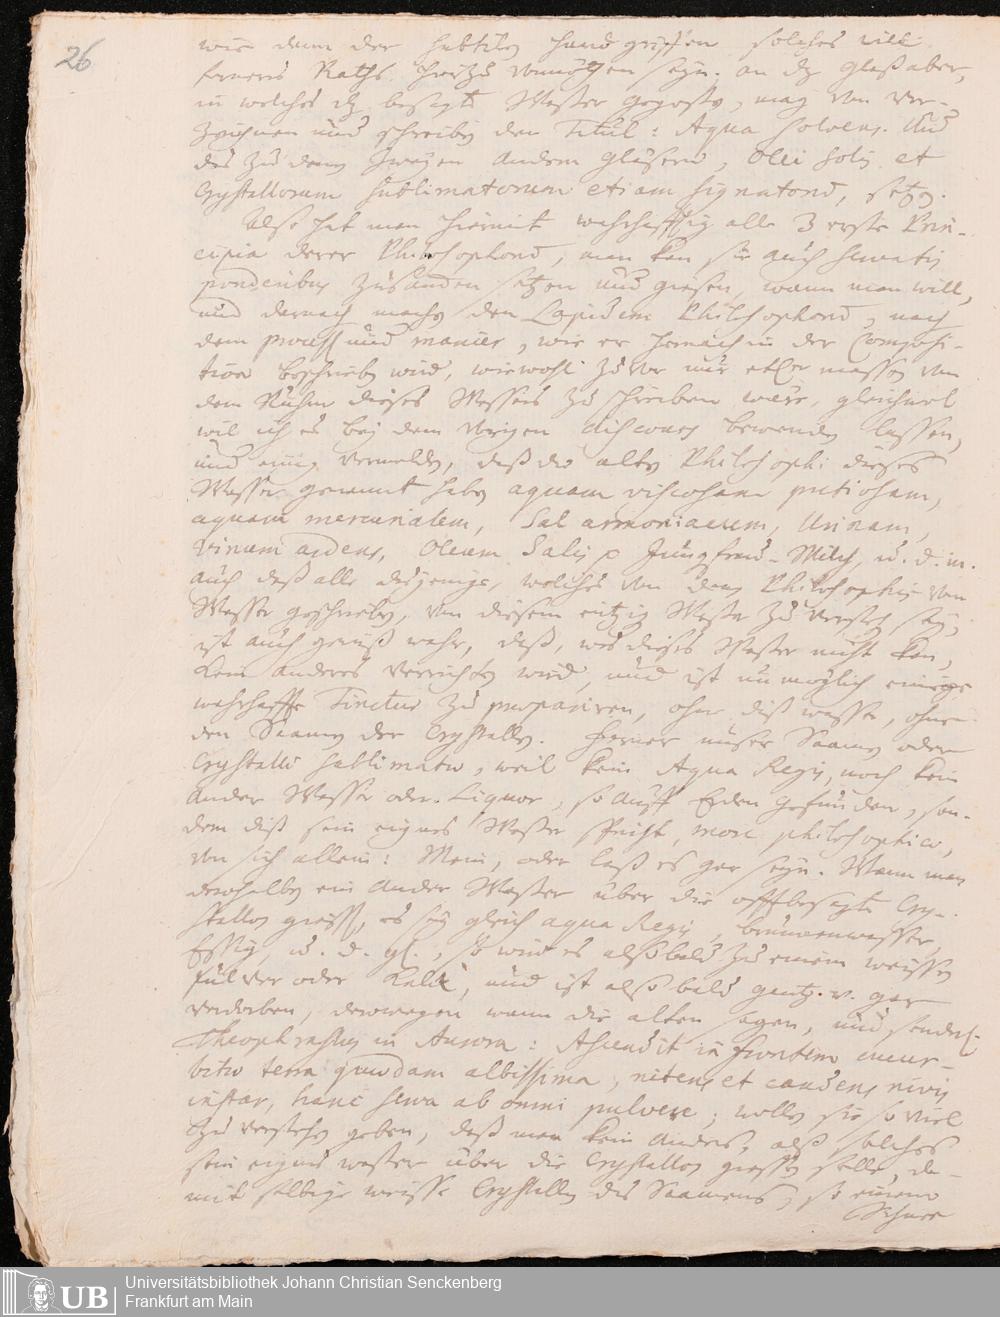 26
wie dann der subtilen handgriffen solches will
ferneres Raths hierzu vonnöthen seyn. an dz glaß aber,
in welches dz besagte Wasser gegossen, mag man ver-
zeichnen und schreiben den Titul: Aqua solvens. Und
des zu denen zweyen andern gläsern, Olei Solis et
Crystallorum sublimatorum etiam signatond, setzen.
Also hat man hiermit wahrhafftig alle 3 erste Prin-
cipia derer Philosophond, man kan sie auch servatis
ponderibus zusamen setzen und giesen, wann man will,
und darnach machen den Lapidem Philosophond, nach
dem process und manier, wie er hernach in der Composi-
tion beschrieben wird, wiewohl zuvor nur etlicher massen von
dem Ruhm dieses Wassers zu schreiben wäre, gleichwol
wil ich es bey dem vorigen discours bewenden lassen,
und einig vermelden, daß die alten Philosophi dieses
Wasser genannt haben aquam viscosam putiosam,
aquam mercurialem, Sal armoniacum, Urinam,
Vinum ardens, Oleum Salis p Jungfrau-Milch, u. d. m.
auch daß alle dasjenige, welches von denen Philosophis von
Wasser geschrieben, von diesem eintzig Wasser zu verstehen sey,
ist auch gewiß wahr, daß, was dieses Wasser nicht kan,
kein anderes verrichten wird, und ist unmöglich einige
wahrhaffte Tinctur zu praepariren, ohne diß wasser, ohne
den Saamen der Crystallen. Ferner unser Saamen oder
Crystalli sublimati, weil kein Aqua Regis, noch kein
ander Wasser oder Liquor, so auff Erden gefunden, son-
dern diß sein eignes Wasser, more philosophico,
von sich allein: Mein, oder laß es gar seyn. Wann man
derohalben ein ander Wasser über die offtbesagte Cry-
stallos giesst, es sey gleich aqua Regis, brunnenwasser,
Essig, u. d. gl., so wird es alsobald zu einem weissen
Pulver oder Kalck, und ist alsobald gantz v. gar
verdorben, derowegen wann die alten sagen, und sonderl.
Theophrastus in Aurora: Ascendit in frontem cucur-
bitae terra quaedam albissima, nitens et candens nivis
instar, hanc serva ab omni pulvere; wollen sie so viel
zu verstehen geben, daß man kein anders, alß solches
sein eignes wasser über die Crystallos giessen solle, da-
mit selbige weisse Crystallen des Saamens, so einem
Schnee
Universitätsbibliothek Johann Christian Senckenberg
Frankfurt am Main
UB